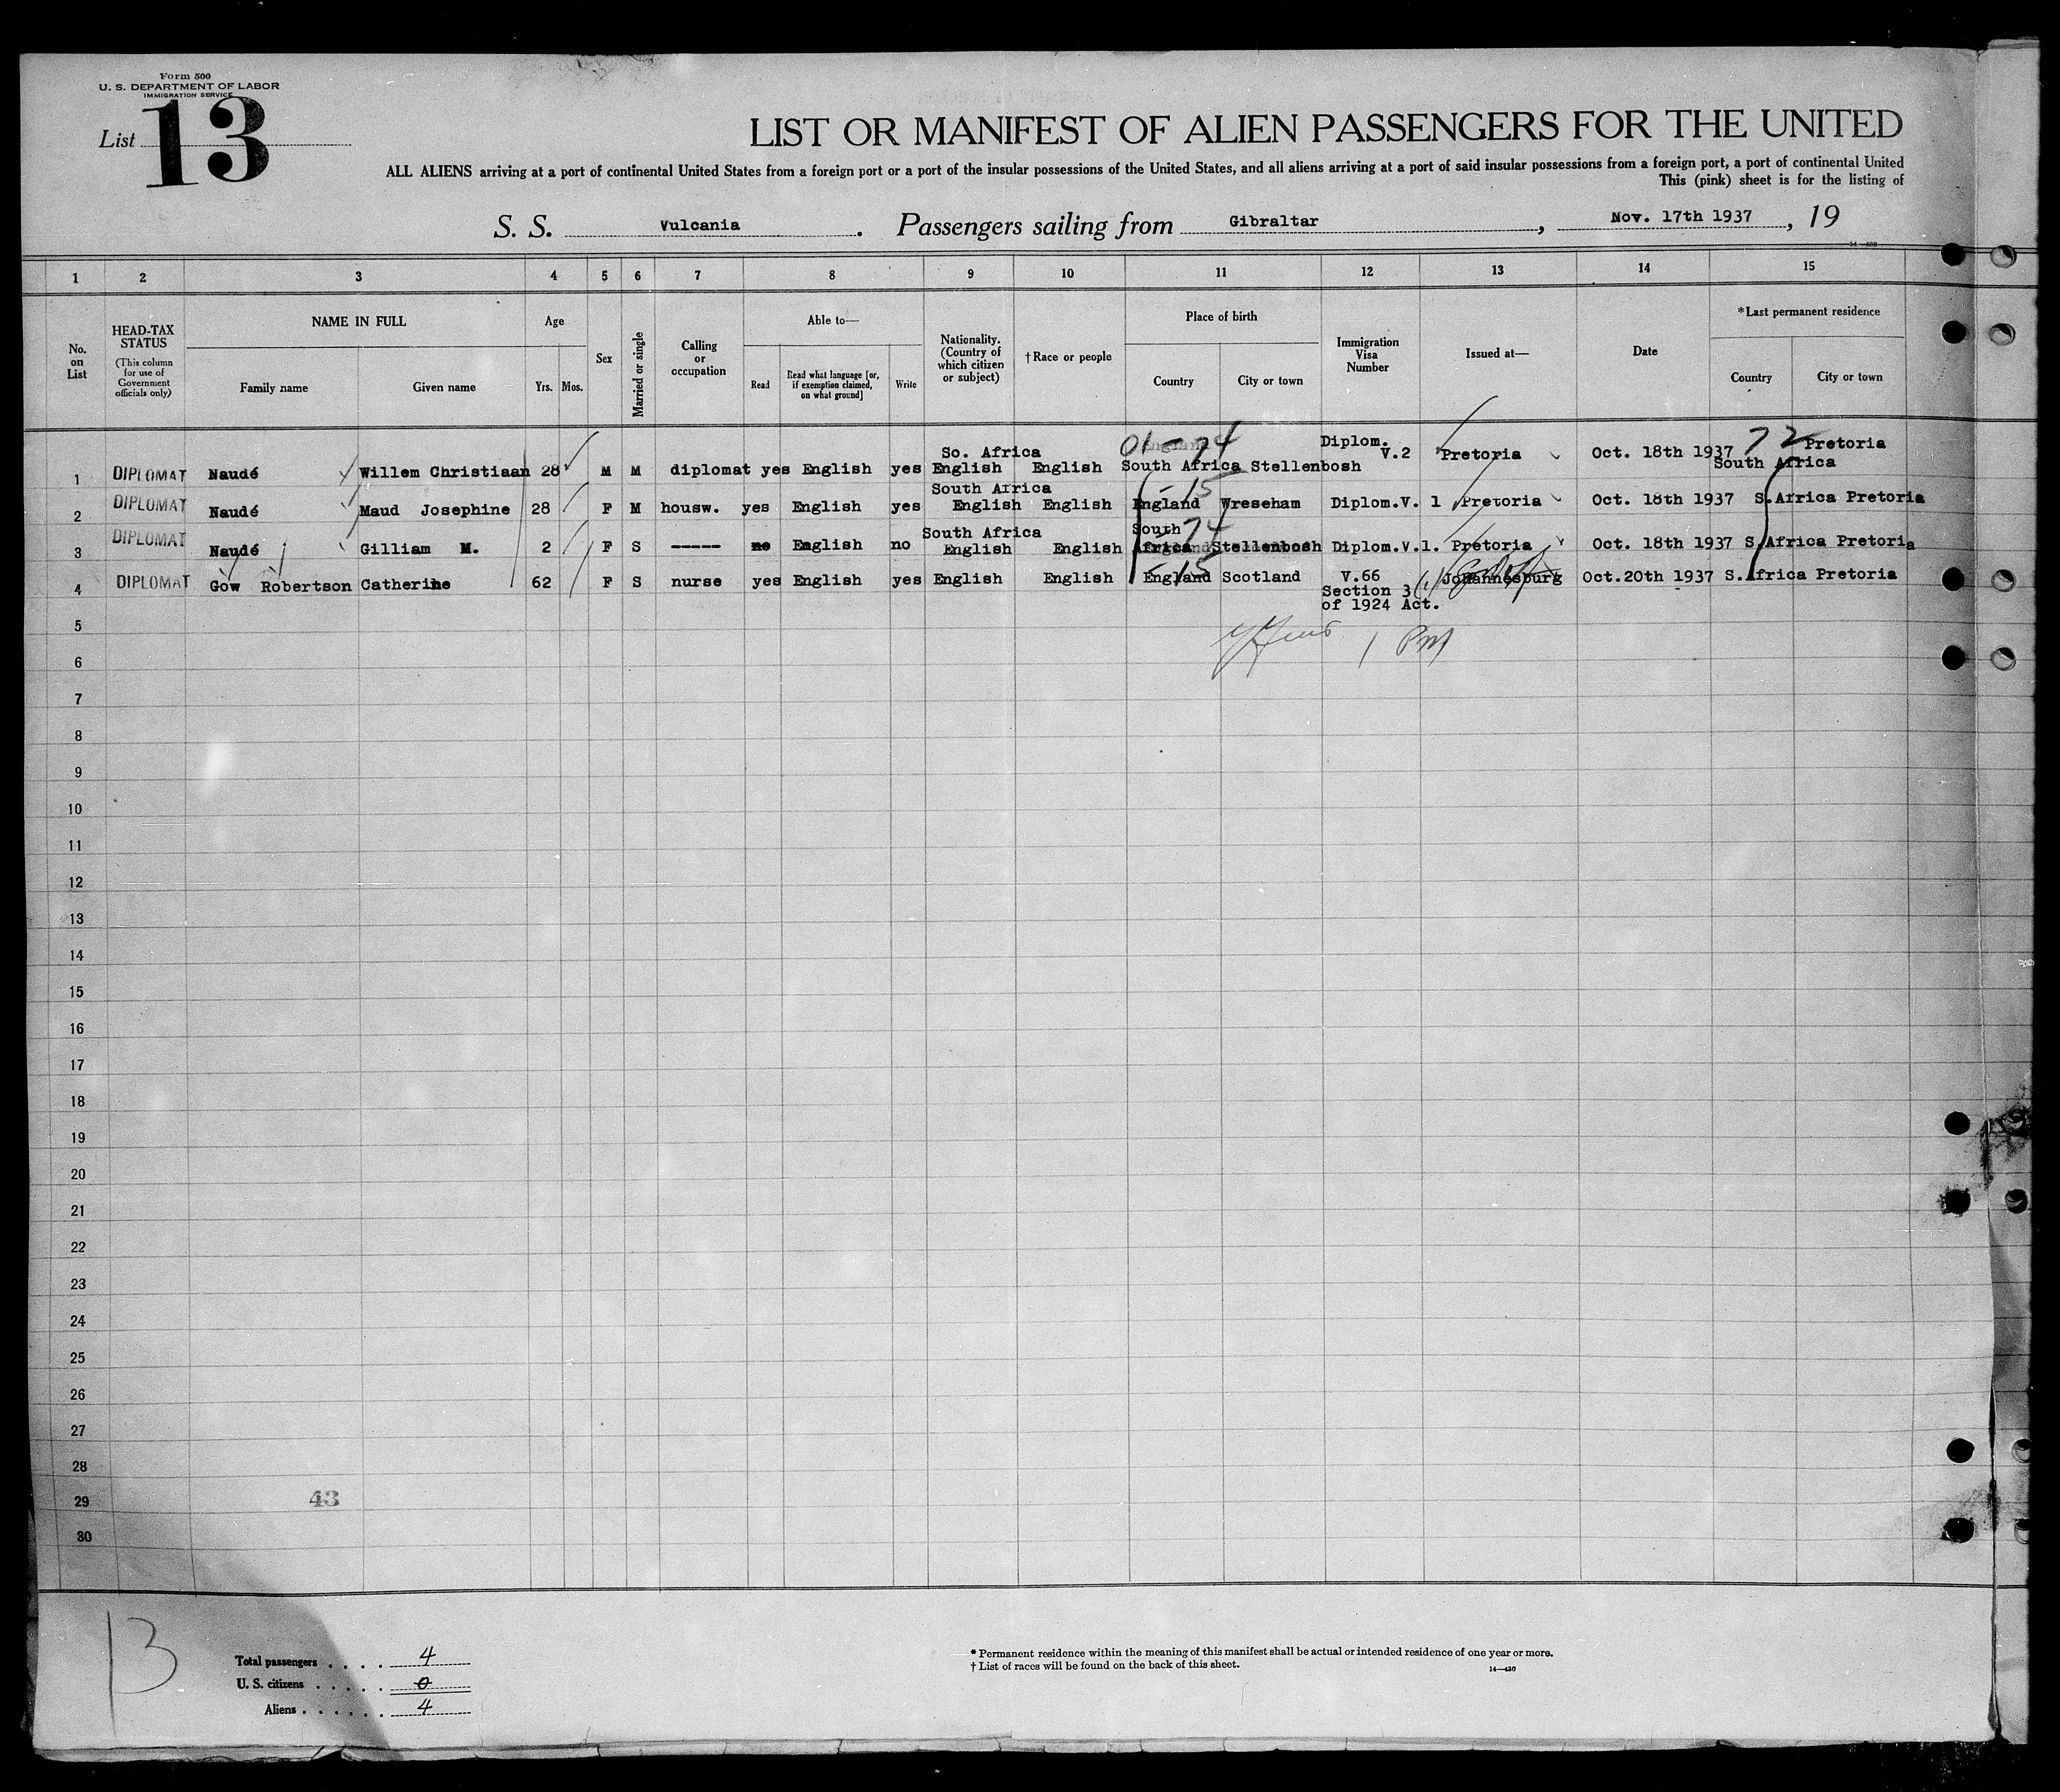 Form 500
U. S. DEPARTMENT OF LABOR
IMMIGRATION SERVICE
List 13
LIST OR MANIFEST OF ALIEN PASSENGERS FOR THE UNITED
ALL ALIENS arriving at a port of continental United States from a foreign port or a port of the insular possessions of the United States, and all aliens arriving at a port of said insular possessions from a foreign port, a port of continental United
This (pink) sheet is for the listing of
S. S. Vulcania. Passengers sailing from Gibraltar, Nov. 17th 1937, 19
1 2 3 4 5 6 7 8 9 10 11 12 13 14 15
No. on List
HEAD-TAX STATUS (This column for use of Government officials only)
NAME IN FULL
Family name Given name
Age
Yrs. Mos.
Sex
Married or single
Calling or occupation
Able to—
Read Read what language [or, if exemption claimed, on what ground] Write
Nationality. (Country of which citizen or subject)
†Race or people
Place of birth
Country City or town
Immigration Visa Number
Issued at—
Date
*Last permanent residence
Country City or town
So. Africa 01-74 Diplom. 72 Pretoria
1 DIPLOMAT Naudé Willem Christiaan 28 M M diplomat yes English yes English English South Africa Stellenbosh V.2 Pretoria Oct. 18th 1937 South Africa
South Africa -15
2 DIPLOMAT Naudé Maud Josephine 28 F M housw. yes English yes English English England Wreseham Diplom.V. 1 Pretoria Oct. 18th 1937 S.Africa Pretoria
South Africa South 74
3 DIPLOMAT Naudé Gilliam M. 2 F S ----- no English no English English Africa Stellenbosh Diplom.V.1. Pretoria Oct. 18th 1937 S.Africa Pretoria
-15
4 DIPLOMAT Gow Robertson Catherine 62 F S nurse yes English yes English English England Scotland V.66 Johannesburg Oct.20th 1937 S.Africa Pretoria
Section 3(1)
of 1924 Act.
5
1 PM
6
7
8
9
10
11
12
13
14
15
16
17
18
19
20
21
22
23
24
25
26
27
28
29 43
30
13
Total passengers . . . . 4
U. S. citizens . . . . . 0
Aliens . . . . . . 4
* Permanent residence within the meaning of this manifest shall be actual or intended residence of one year or more.
† List of races will be found on the back of this sheet.
14—430